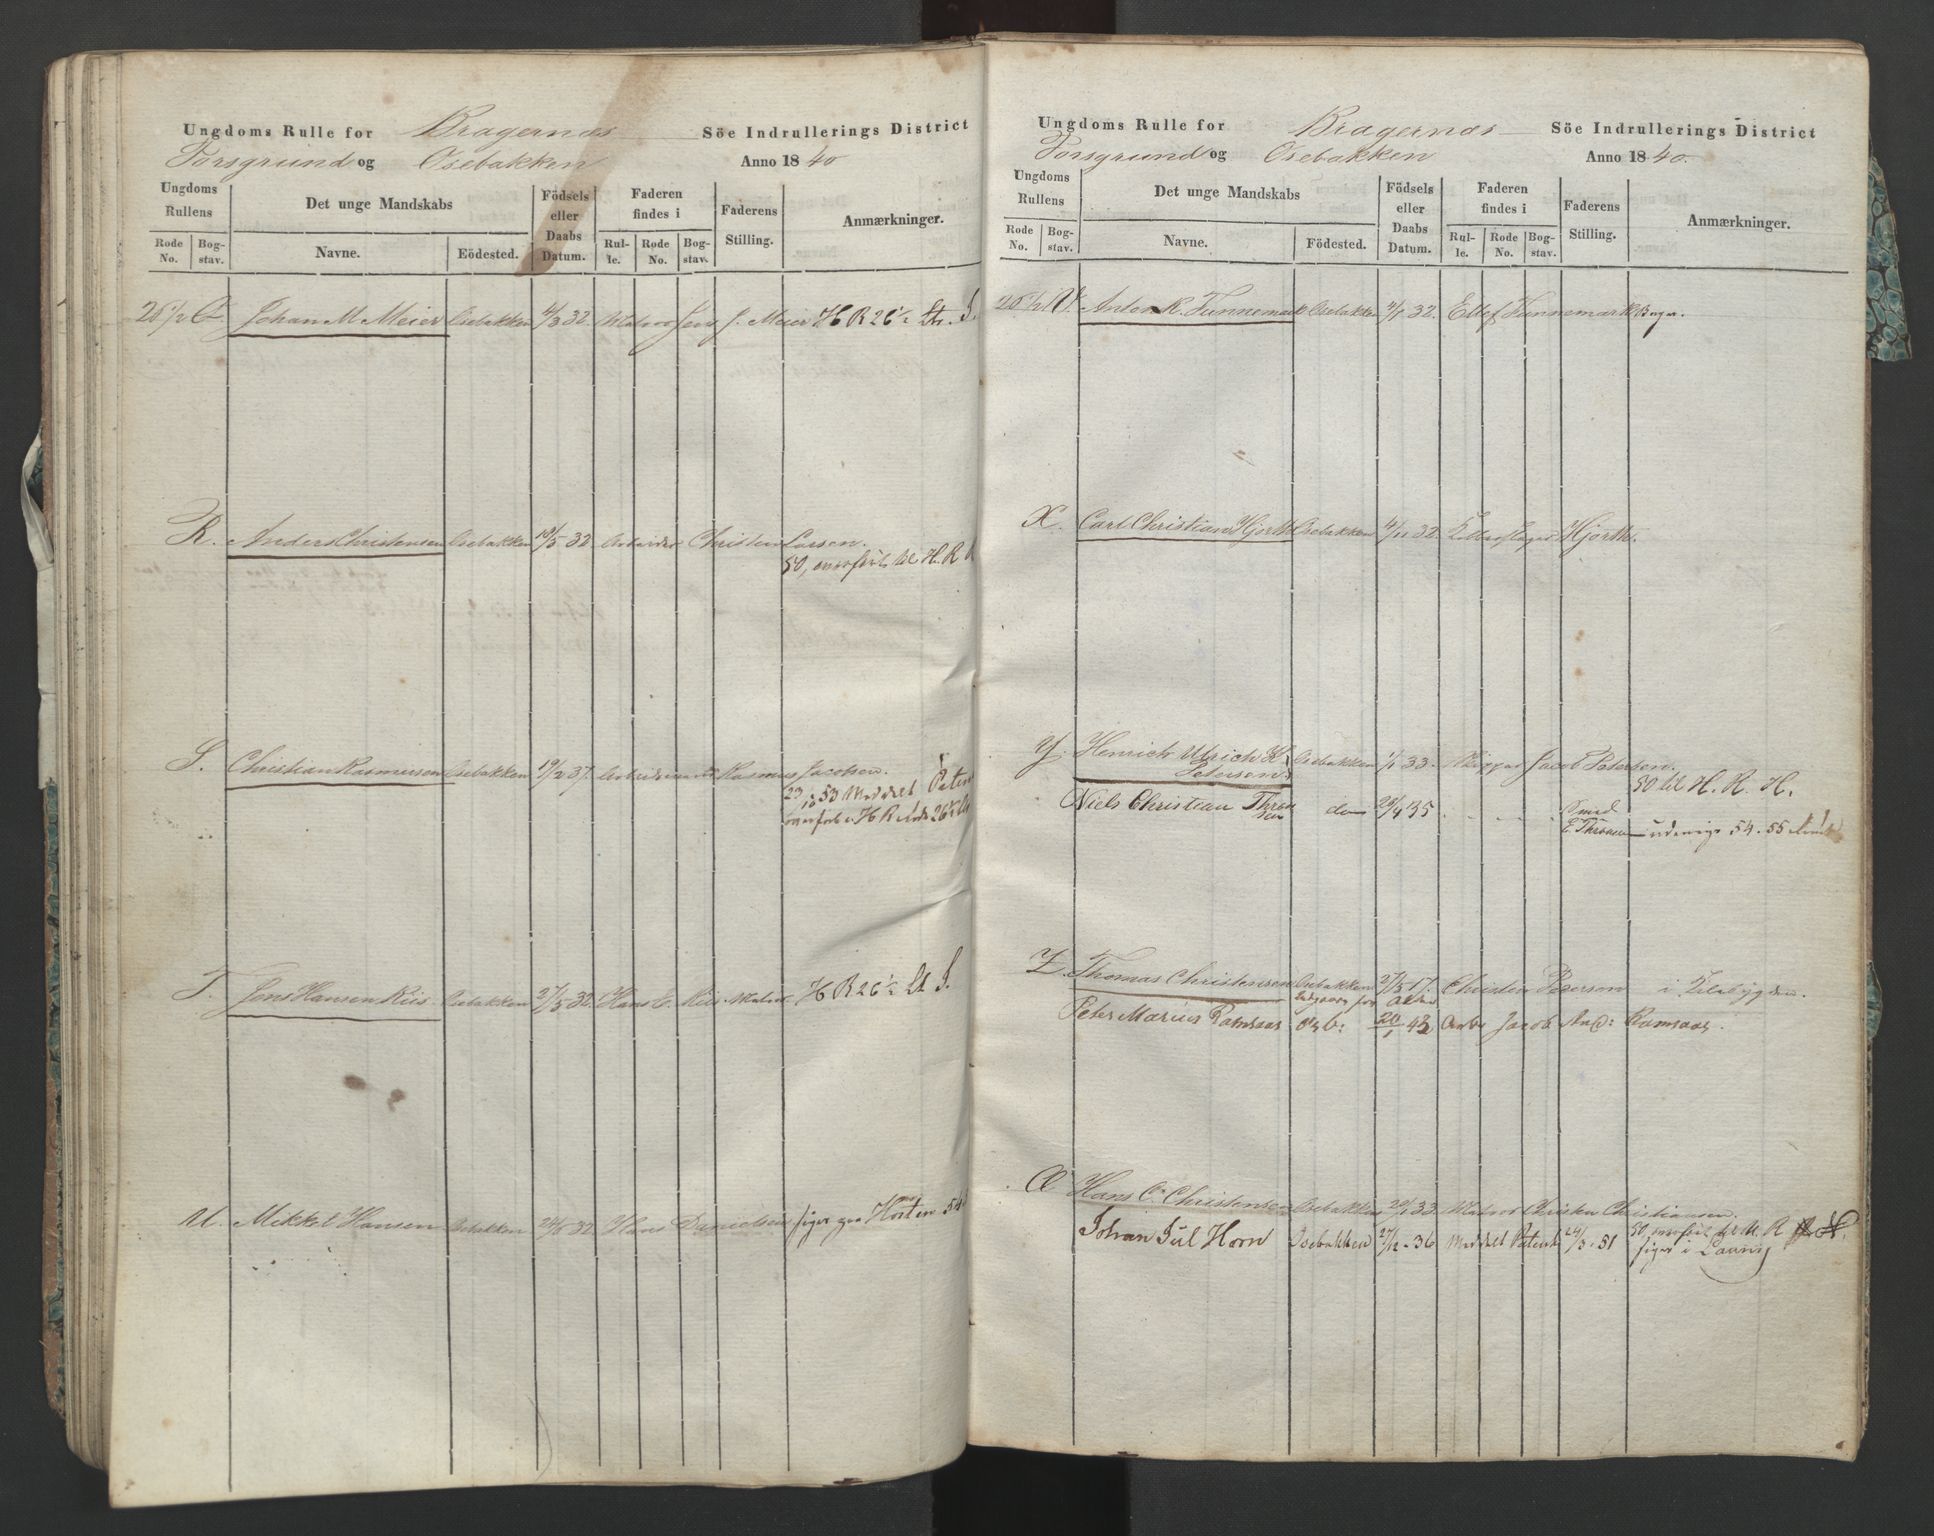 Ungdoms Rulle for Bragernæs Söe Indrullerings District
Porsgrund og Osebakken Anno 1840
Ungdoms Rullens
Det unge Mandskabs
Födsels eller Daabs Datum.
Faderen findes i
Faderens Stilling.
Anmærkninger.
Rode No.
Bogstav.
Navne.
Eödested.
Rulle.
Rode No.
Bogstav.
26 1/2 Q Johan M Meier Osebakken 4/3 32. Matros Jens J. Meier H R 26 1/2 Lt. S.
R. Anders Christensen Osebakken 19/5 32. Arbeider Christen Larsen.
50, overført til H. R
S. Christian Rasmusen Osebakken 19/2 37. Arbeidsmand Rasmus Jacobsen.
23/10 53 Meddelt Patent
H R 26 1/2
T. Jens Hansen Riis Osebakken 27/5 32. Hans C. Riis Matros H R 26 1/2 Lt S.
U. Mikkel Hansen Osebakken 32. Hans Danielsen siger paa Horten 54
Ungdoms Rulle for Bragernæs Söe Indrullerings District
Porsgrund og Osebakken Anno 1840.
Ungdoms Rullens
Det unge Mandskabs
Födsels eller Daabs Datum.
Faderen findes i
Faderens Stilling.
Anmærkninger.
Rode No.
Bogstav.
Navne.
Födested.
Rulle.
Rode No.
Bogstav.
26 1/2 V. Anton R. Funnemark Osebakken 4/1 32. Ellef Funnemark Bager.
X. Carl Christian Hjorth Osebakken 4/11 32. Hjorth.
Y. Henrich Ulrich K. Osebakken 1/1 33. Skipper Jacob Petersen.
Petersen. 50 til H. R. H.
Niels Christian Thronsen dom 25/4 35 Smed
E. Thronsen udenrigs 54. 55
Z. Thomas Christensen Osebakken 27/5 17. Christen Petersen i
Udgaaer for Alder
Peter Marius Ramsaas Osb: 20/1 43 Arb Jacob And: Ramsaas.
Æ Hans C. Christensen Osebakken 20/1 33. Matros Christen Christiansen.
Johan Jul Horn Osebakken 27/12 - 36 Meddelt Patent 24/3 - 51 50, overført til H. R
siger i Laurvig